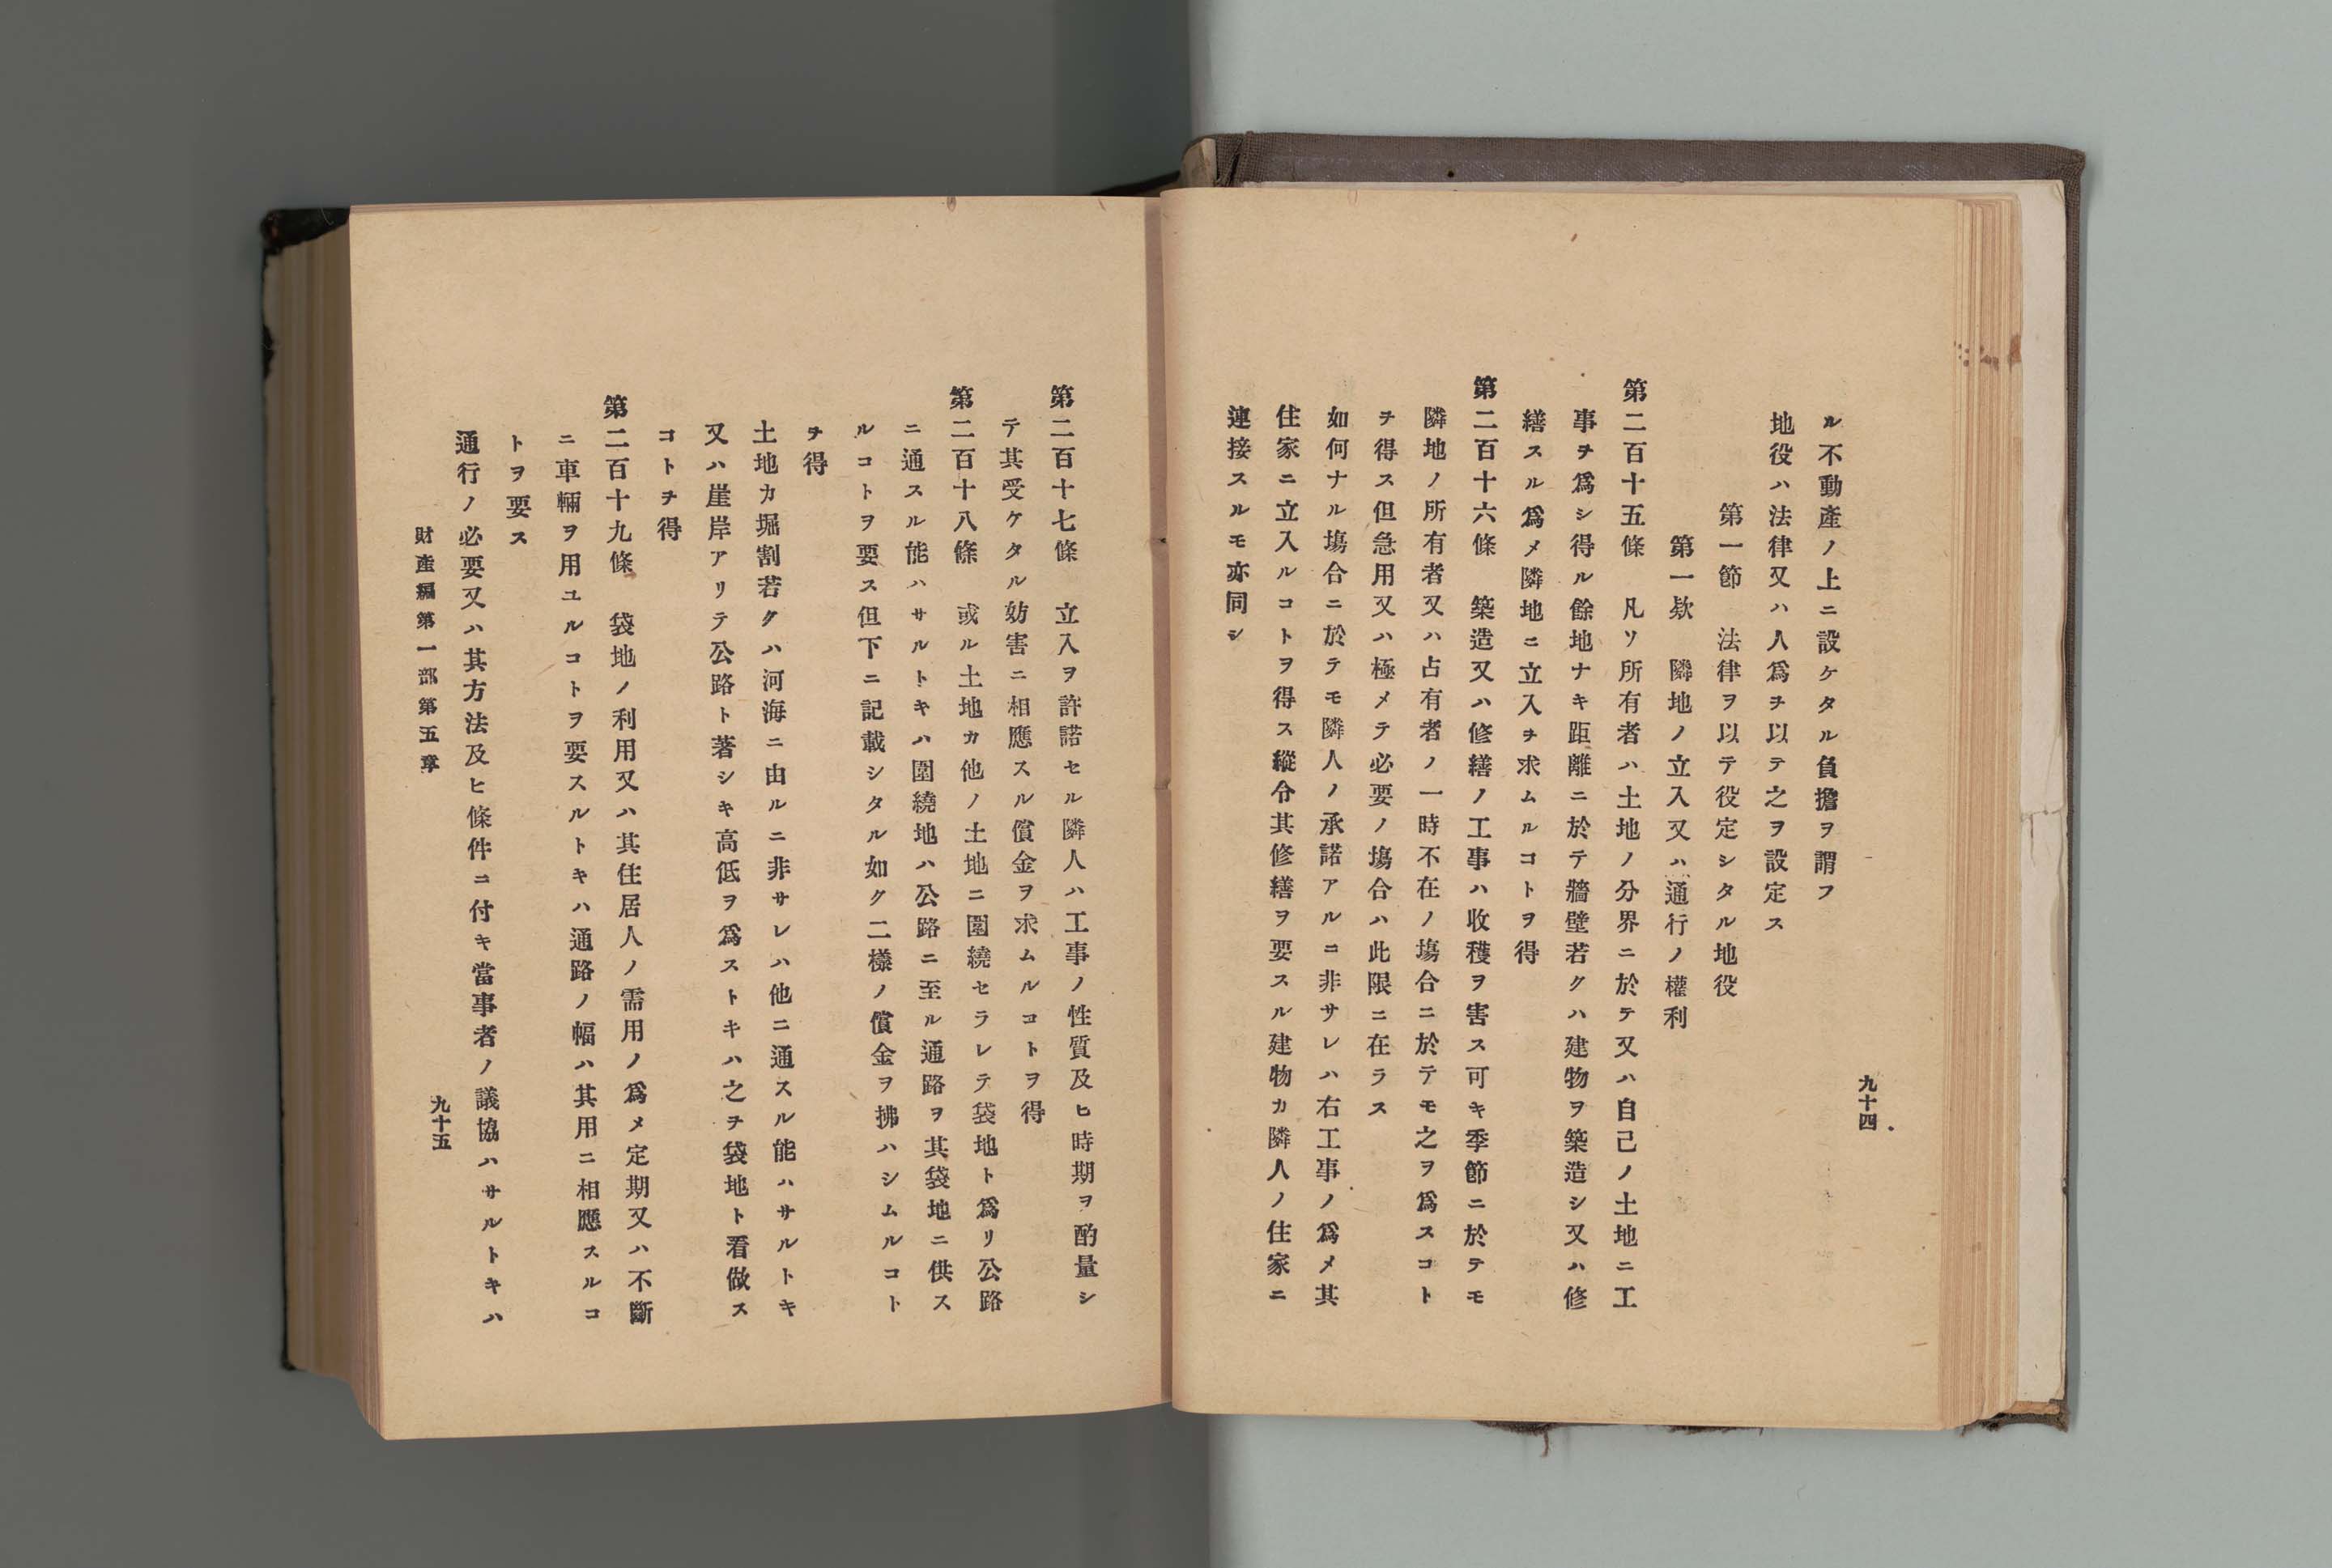 九十四
ル不動產ノ上ニ設ケタル負擔ヲ謂フ
地役ハ法律又ハ人爲ヲ以テ之ヲ設定ス
第一節　法律ヲ以テ役定シタル地役
第一欵　隣地ノ立入又ハ通行ノ權利
第二百十五條　凡ソ所有者ハ土地ノ分界ニ於テ又ハ自己ノ土地ニ工
事ヲ爲シ得ル餘地ナキ距離ニ於テ牆壁若クハ建物ヲ築造シ又ハ修
繕スル爲メ隣地ニ立入ヲ求ムルコトヲ得
第二百十六條　築造又ハ修繕ノ工事ハ收穫ヲ害ス可キ季節ニ於テモ
隣地ノ所有者又ハ占有者ノ一時不在ノ塲合ニ於テモ之ヲ爲スコト
ヲ得ス但急用又ハ極メテ必要ノ塲合ハ此限ニ在ラス
如何ナル塲合ニ於テモ隣人ノ承諾アルニ非サレハ右工事ノ爲メ其
住家ニ立入ルコトヲ得ス縱令其修繕ヲ要スル建物カ隣人ノ住家ニ
連接スルモ亦同シ
第二百十七條　立入ヲ許諾セル隣人ハ工事ノ性質及ヒ時期ヲ酌量シ
テ其受ケタル妨害ニ相應スル償金ヲ求ムルコトヲ得
第二百十八條　或ル土地カ他ノ土地ニ圍繞セラレテ袋地ト爲リ公路
ニ通スル能ハサルトキハ圍繞地ハ公路ニ至ル通路ヲ其袋地ニ供ス
ルコトヲ要ス但下ニ記載シタル如ク二樣ノ償金ヲ拂ハシムルコト
ヲ得
土地カ堀割若クハ河海ニ由ルニ非サレハ他ニ通スル能ハサルトキ
又ハ崖岸アリテ公路ト著シキ高低ヲ爲ストキハ之ヲ袋地ト看做ス
コトヲ得
第二百十九條　袋地ノ利用又ハ其住居人ノ需用ノ爲メ定期又ハ不斷
ニ車輛ヲ用ユルコトヲ要スルトキハ通路ノ幅ハ其用ニ相應スルコ
トヲ要ス
通行ノ必要又ハ其方法及ヒ條件ニ付キ當事者ノ議協ハサルトキハ
財產編第一部第五章
九十五